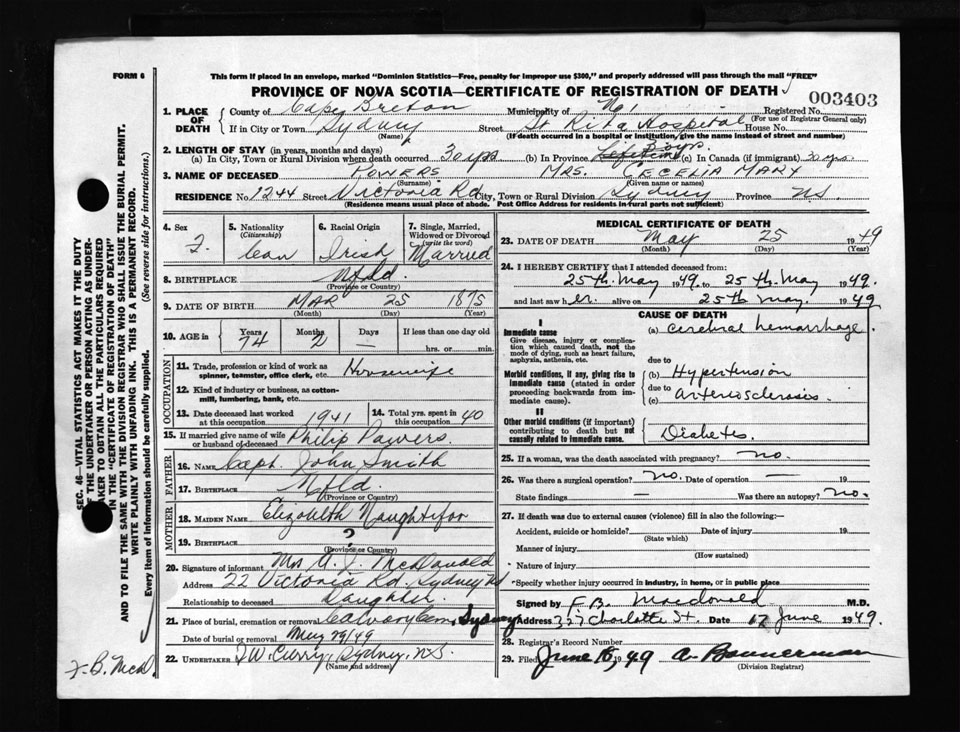 FORM 6
This form if placed in an envelope, marked "Dominion Statistics—Free, penalty for improper use $300," and properly addressed will pass through the mail "FREE"
PROVINCE OF NOVA SCOTIA—CERTIFICATE OF REGISTRATION OF DEATH
003403
1. PLACE OF DEATH
County of Cape Breton Municipality of Registered No.
(For use of Registrar General only)
If in City or Town Sydney Street St Rita Hospital House No.
(Name) (If death occurred in a hospital or institution, give the name instead of street and number)
2. LENGTH OF STAY (in years, months and days)
(a) In City, Town or Rural Division where death occurred 30 yrs (b) In Province Lifetime (c) In Canada (if immigrant) 30 yrs.
3. NAME OF DECEASED POWERS MRS. CECELIA MARY
(Surname) (Given name or names)
RESIDENCE No 1244 Street Victoria Rd City, Town or Rural Division Sydney Province NS
(Residence means usual place of abode. Post Office Address for residents in rural parts not sufficient)
4. Sex
F.
5. Nationality
(Citizenship)
Can
6. Racial Origin
Irish
7. Single, Married, Widowed or Divorced
(write the word)
Married
8. BIRTHPLACE Nfld.
(Province or Country)
9. DATE OF BIRTH MAR 25 1875
(Month) (Day) (Year)
10. AGE in
Years Months Days If less than one day old
74 2 — hrs. or min.
OCCUPATION
11. Trade, profession or kind of work as spinner, teamster, office clerk, etc. Housewife
12. Kind of industry or business, as cotton-mill, lumbering, bank, etc.
13. Date deceased last worked at this occupation 1941
14. Total yrs. spent in 40
15. If married give name of wife or husband of deceased Philip Powers.
FATHER
16. NAME Capt. John Smith
17. BIRTHPLACE Nfld.
(Province or Country)
MOTHER
18. MAIDEN NAME Elizabeth
19. BIRTHPLACE ?
(Province or Country)
20. Signature of informant Mrs A. J. McDonald
Address 22 Victoria Rd. Sydney NS
Relationship to deceased Daughter.
21. Place of burial, cremation or removal Calvary Cem, Sydney
Date of burial or removal May 29/49
22. UNDERTAKER J W. Curry, Sydney, N.S.
(Name and address)
MEDICAL CERTIFICATE OF DEATH
23. DATE OF DEATH May 25 1949
(Month) (Day) (Year)
24. I HEREBY CERTIFY that I attended deceased from:
25th. May 1949. to 25th. May 1949.
and last saw h er. alive on 25th May. 1949
CAUSE OF DEATH
I
Immediate cause
Give disease, injury or complication which caused death, not the mode of dying, such as heart failure, asphyxia, asthenia, etc.
(a) cerebral hemorrhage.
due to
Morbid conditions, if any, giving rise to immediate cause (stated in order proceeding backwards from immediate cause).
(b) Hypertension
due to
(c) arteriosclerosis
II
Other morbid conditions (if important) contributing to death but not causally related to immediate cause.
Diabetes.
25. If a woman, was the death associated with pregnancy? no.
26. Was there a surgical operation? no. Date of operation — 19
State findings — Was there an autopsy? no.
27. If death was due to external causes (violence) fill in also the following:—
Accident, suicide or homicide? Date of injury 19
(State which)
Manner of injury
(How sustained)
Nature of injury
Specify whether injury occurred in industry, in home, or in public place
Signed by F.B. Macdonald M.D.
Address 327 Charlotte St. Date 17 June 1949.
28. Registrar's Record Number
29. Filed June 16 1949 A. Bannerman
(Division Registrar)
SEC. 46—VITAL STATISTICS ACT MAKES IT THE DUTY
OF THE UNDERTAKER OR PERSON ACTING AS UNDER-
TAKER TO OBTAIN ALL THE PARTICULARS REQUIRED
IN THE "CERTIFICATE OF REGISTRATION OF DEATH"
AND TO FILE THE SAME WITH THE DIVISION REGISTRAR WHO SHALL ISSUE THE BURIAL PERMIT.
WRITE PLAINLY WITH UNFADING INK. THIS IS A PERMANENT RECORD.
Every item of information should be carefully supplied. (See reverse side for instructions.)